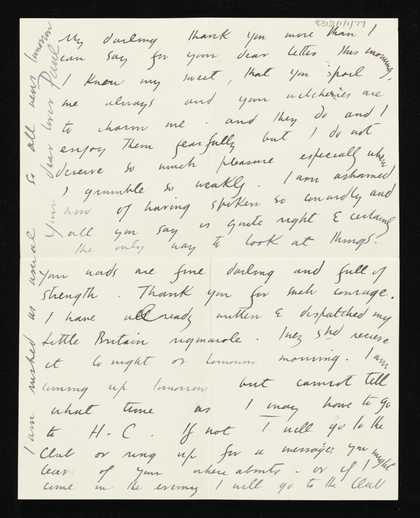 My darling thank you more than I
can say for your dear letter this morning,
I know my sweet, that you spoil
me always and your witcheries are
to charm me - and they do and I
enjoy them fearfully but I do not
deserve so much pleasure especially when
I grumble so weakly. I am ashamed
now of having spoken so cowardly and
all you say is quite right & certainly
the only way to look at things.
Your words are fine darling and full of
strength. Thank you for such courage.
I have already written & dispatched my
Little Britain rigmarole. Inez shd receive
it tonight or tomorrow morning. I am
coming up tomorrow but cannot tell
what time as I may have to go
to H-C. If not I will go to the
Club or ring up for a message you might
leave of your whereabouts - or if I
come in the evening I will go to the Club
I am rushed as usual so all news tomorrow
Your dear lover Paul